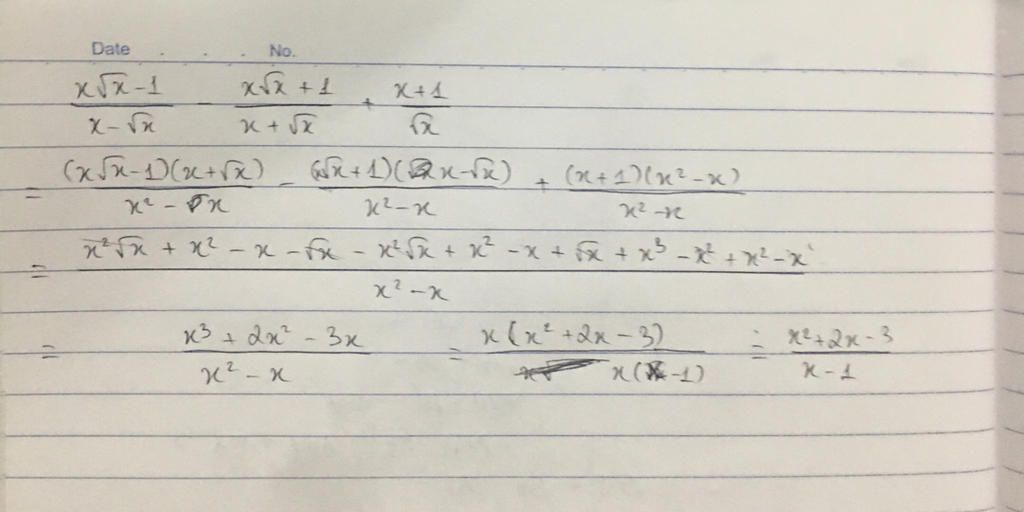 Date . . . No.
(x√x - 1)/(x - √x) - (x√x + 1)/(x + √x) + (x + 1)/√x
= ((x√x - 1)(x + √x))/(x² - x) - ((x√x + 1)(x - √x))/(x² - x) + ((x + 1)(x² - x))/(x² - x)
= (x²√x + x² - x - √x - x²√x + x² - x + √x + x³ - x² + x² - x)/(x² - x)
= (x³ + 2x² - 3x)/(x² - x) = (x(x² + 2x - 3))/(x(x - 1)) = (x² + 2x - 3)/(x - 1)